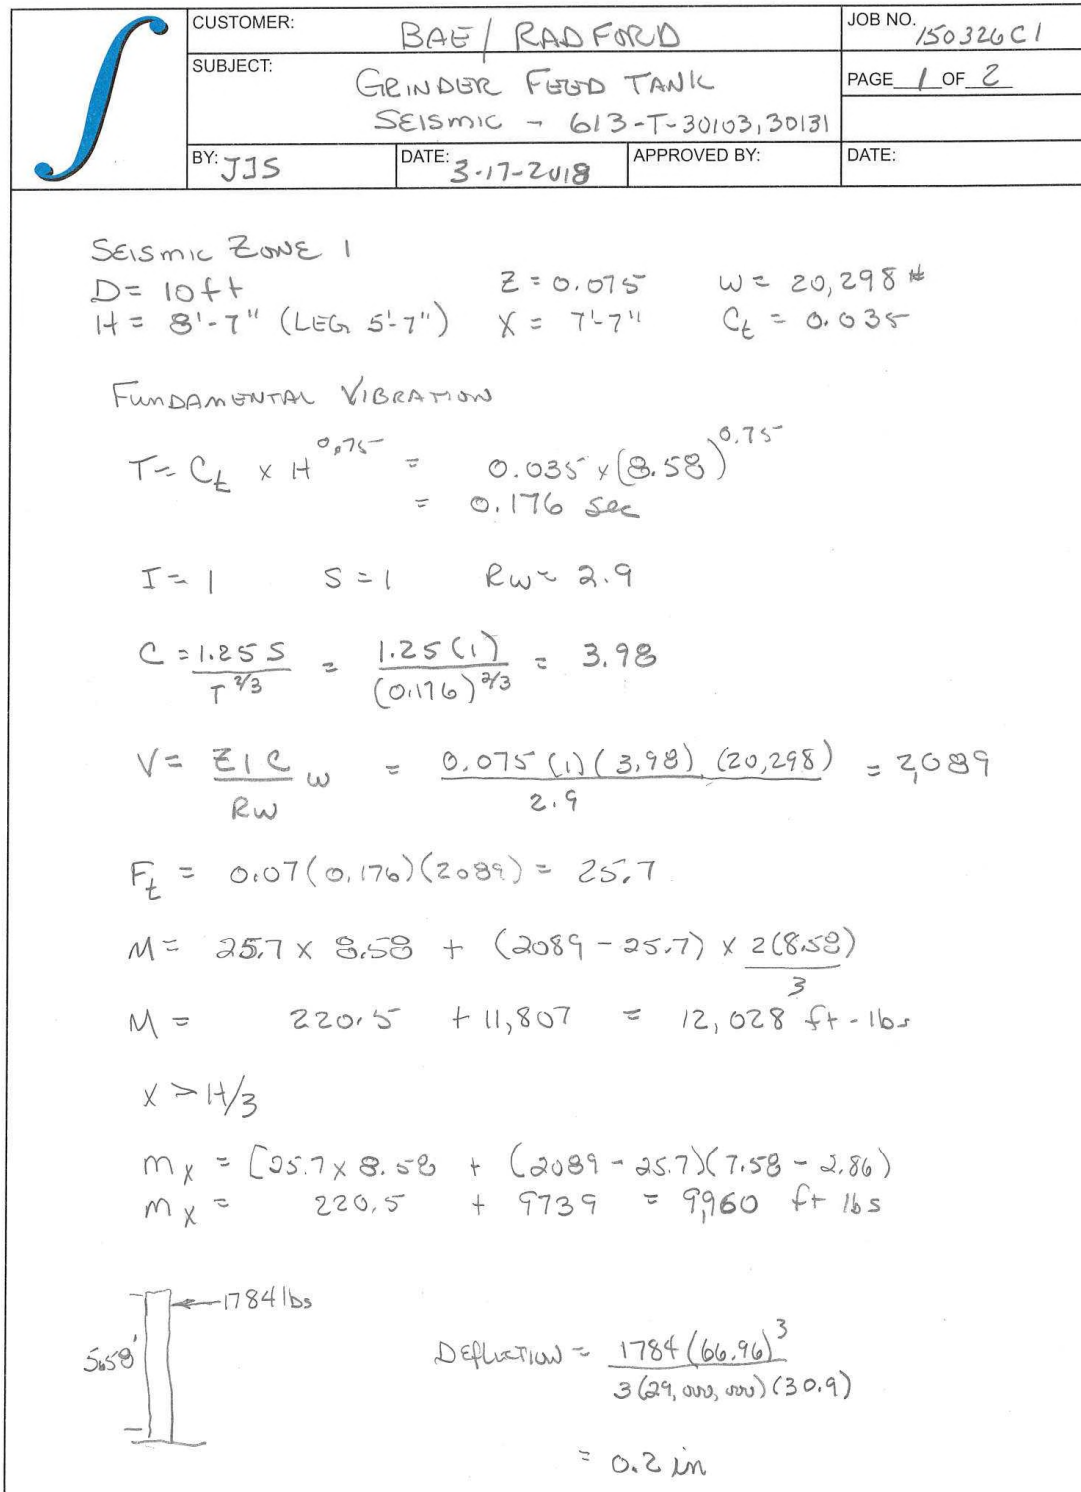 CUSTOMER: BAE / RADFORD
JOB NO. 150326C1
SUBJECT: GRINDER FEED TANK
SEISMIC - 613-T-30103, 30131
PAGE 1 OF 2
BY: JJS DATE: 3-17-2018 APPROVED BY: DATE:
SEISMIC ZONE 1
D = 10 ft Z = 0.075 W = 20,298 #
H = 8'-7" (LEG 5'-7") X = 7'-7" Ct = 0.035
FUNDAMENTAL VIBRATION
T = Ct x H^0.75 = 0.035 x (8.58)^0.75
= 0.176 sec
I = 1 S = 1 Rw = 2.9
C = 1.25 S / T^2/3 = 1.25 (1) / (0.176)^2/3 = 3.98
V = Z I C / Rw w = 0.075 (1) (3.98) (20,298) / 2.9 = 2,089
Ft = 0.07 (0.176) (2089) = 25.7
M = 25.7 x 8.58 + (2089 - 25.7) x 2(8.58) / 3
M = 220.5 + 11,807 = 12,028 ft-lbs
X > H/3
Mx = [25.7 x 8.58 + (2089 - 25.7)(7.58 - 2.86)
Mx = 220.5 + 9739 = 9,960 ft lbs
1784 lbs
5.58'
DEFLECTION = 1784 (66.96)^3 / 3 (29,000,000) (30.9)
= 0.2 in